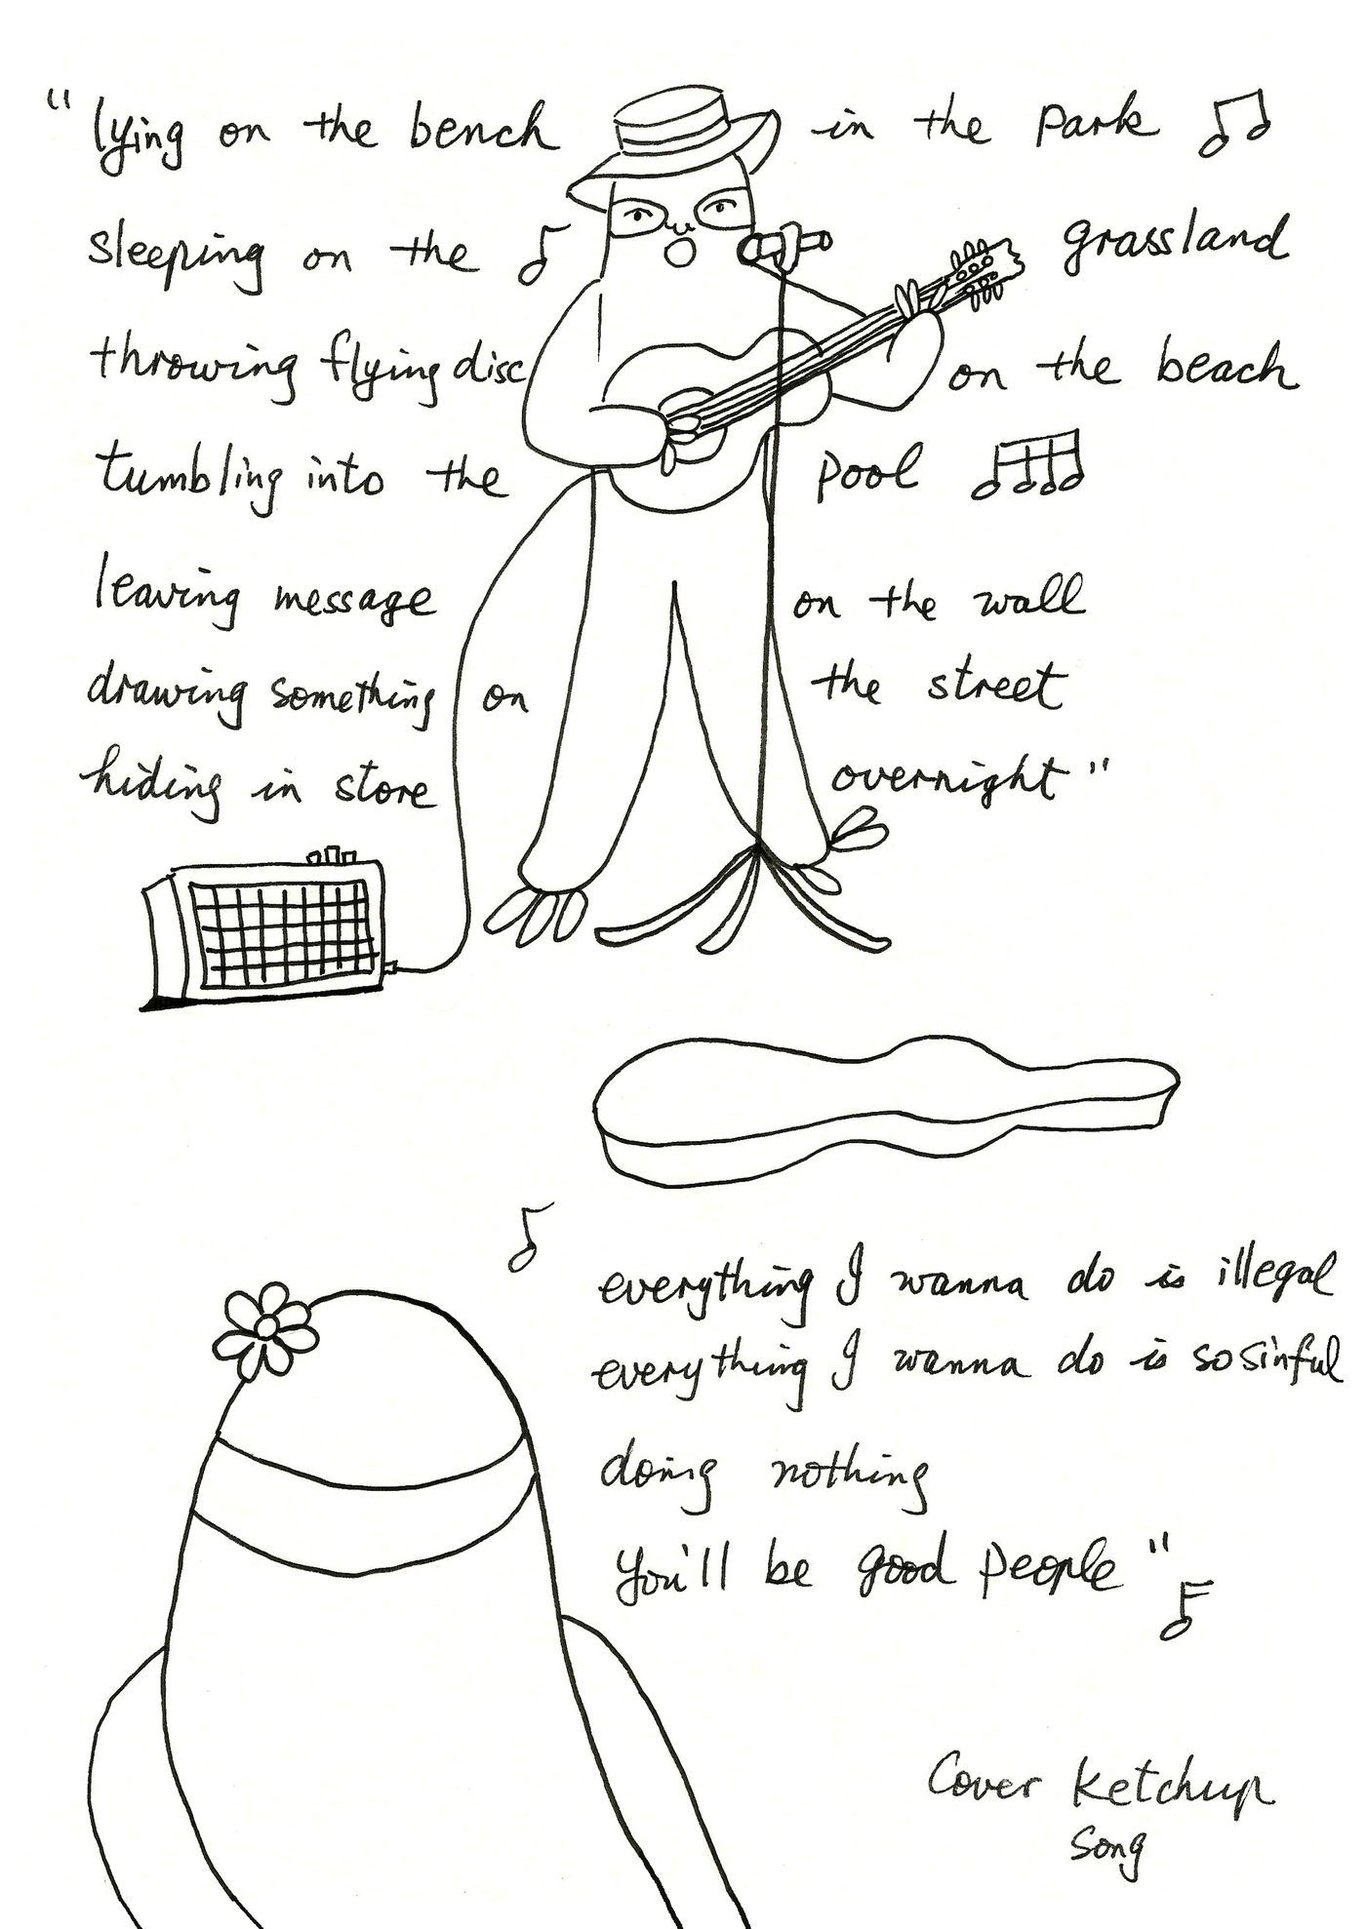 "lying on the bench in the park
sleeping on the grassland
throwing flying disc on the beach
tumbling into the pool
leaving message on the wall
drawing something on the street
hiding in store overnight"
everything I wanna do is illegal
everything I wanna do is so sinful
doing nothing
you'll be good people"
Cover Ketchup
Song